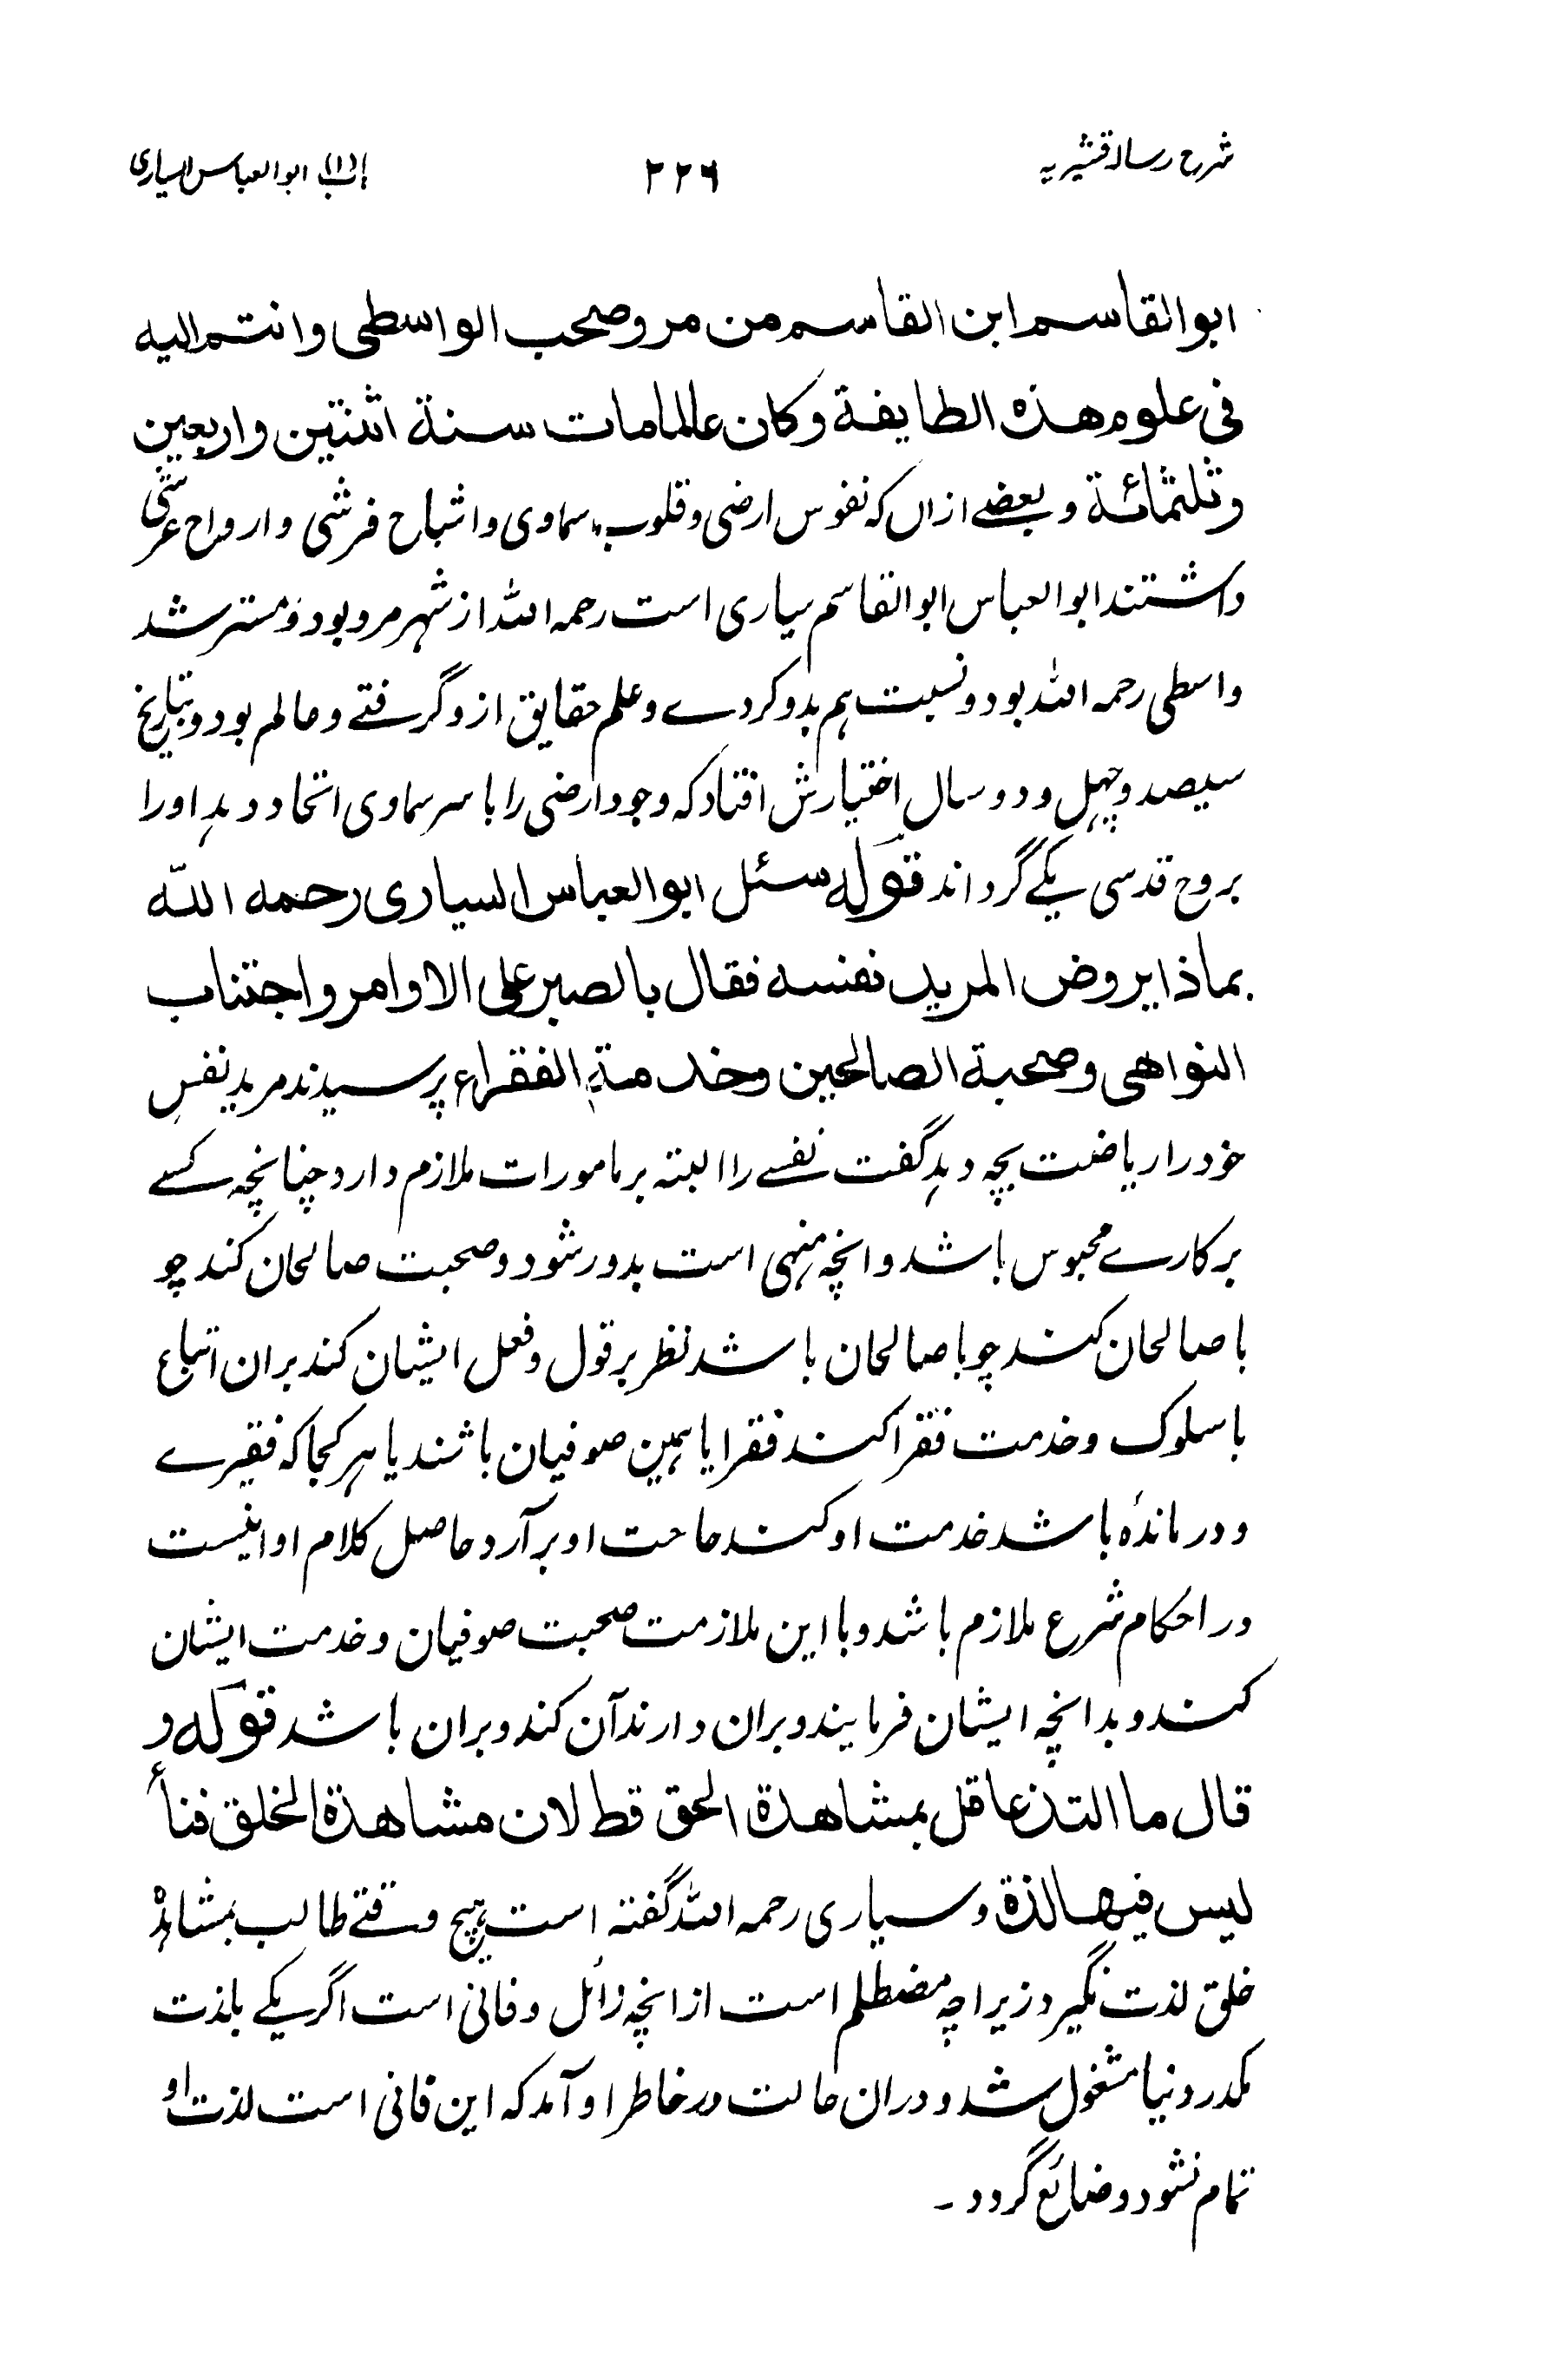 شرح رسالہ قشیریہ
۲۲۶
باب (۱) ابو العباس السیاری
ابو القاسم ابن القاسم من مرو صحب الواسطی وانتم الیه
فی علوم هذه الطایفة وکان عالما مات سنة اثنتین واربعین
وثلثمائة و بعضے ازاں کہ نفوس ارضی و قلوب سماوی و اشباح فرشی و ارواح عرشی
داشتند ابو العباس ابو القاسم سیاری است رحمہ اللہ از شہر مرو بود و مسترشد
واسطی رحمہ اللہ بود و نسبت ہم بدو کردے و علم حقایق ازو گرفتے و عالم بود و بتاریخ
سیصد و چہل و دو سال اختیارش افتاد کہ وجود ارضی را با سر سماوی اتحاد دہد او را
بروح قدسی یکے گرداند قوله سئل ابو العباس السیاری رحمه الله
بماذا یروض المرید نفسه فقال بالصبر علی الاوامر واجتناب
النواهی وصحبة الصالحین وخدمة الفقراء پرسیدند مرید نفس
خود را ریاضت بچہ دہد گفت نفسے را البتہ بر مامورات ملازم دارد چنانچہ کسے
بر کارے محبوس باشد و انچہ منہی است بدور شود و صحبت صالحان کند چو
با صالحان کند چو با صالحان باشد نظر بر قول و فعل ایشان کند بران اتباع
با سلوک و خدمت فقرا کند فقرا یا ہمین صوفیان باشند یا ہر کجا کہ فقیرے
و درماندہٗ باشد خدمت او کند حاجت او بر آرد حاصل کلام او اینست
در احکام شرع ملازم باشد و با این ملازمت صحبت صوفیان و خدمت ایشان
کند و بدانچہ ایشان فرمایند و بران دارند آن کند و بران باشد قوله و
قال ما التذ عاقل بمشاهدة الحق قط لان مشاهدة الخلق فنأ
لیس فیها لذة و سیاری رحمہ اللہ گفتہ است ہیچ وقتے طالب بمشاہدہٗ
خلق لذت نگیرد زیرا چہ مضطلم است ازانچہ زائل و فانی است اگر یکے بلذت
مکدر دنیا مشغول شد و دران حالت در خاطر او آمد کہ این فانی است لذت او
تمام نشود و ضائع گردد ۔